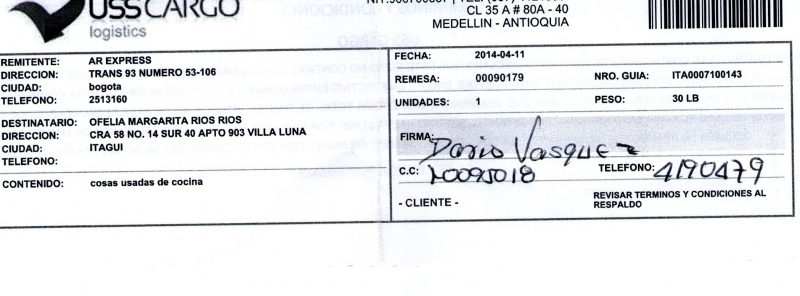 USSCARGO
logistics
CL 35 A # 80A - 40
MEDELLIN - ANTIOQUIA
REMITENTE: AR EXPRESS
DIRECCION: TRANS 93 NUMERO 53-106
CIUDAD: bogota
TELEFONO: 2513160
DESTINATARIO: OFELIA MARGARITA RIOS RIOS
DIRECCION: CRA 58 NO. 14 SUR 40 APTO 903 VILLA LUNA
CIUDAD: ITAGUI
TELEFONO:
CONTENIDO: cosas usadas de cocina
FECHA: 2014-04-11
REMESA: 00090179 NRO. GUIA: ITA0007100143
UNIDADES: 1 PESO: 30 LB
FIRMA: Dario Vasquez
C.C: TELEFONO: 4190479
- CLIENTE - REVISAR TERMINOS Y CONDICIONES AL
RESPALDO